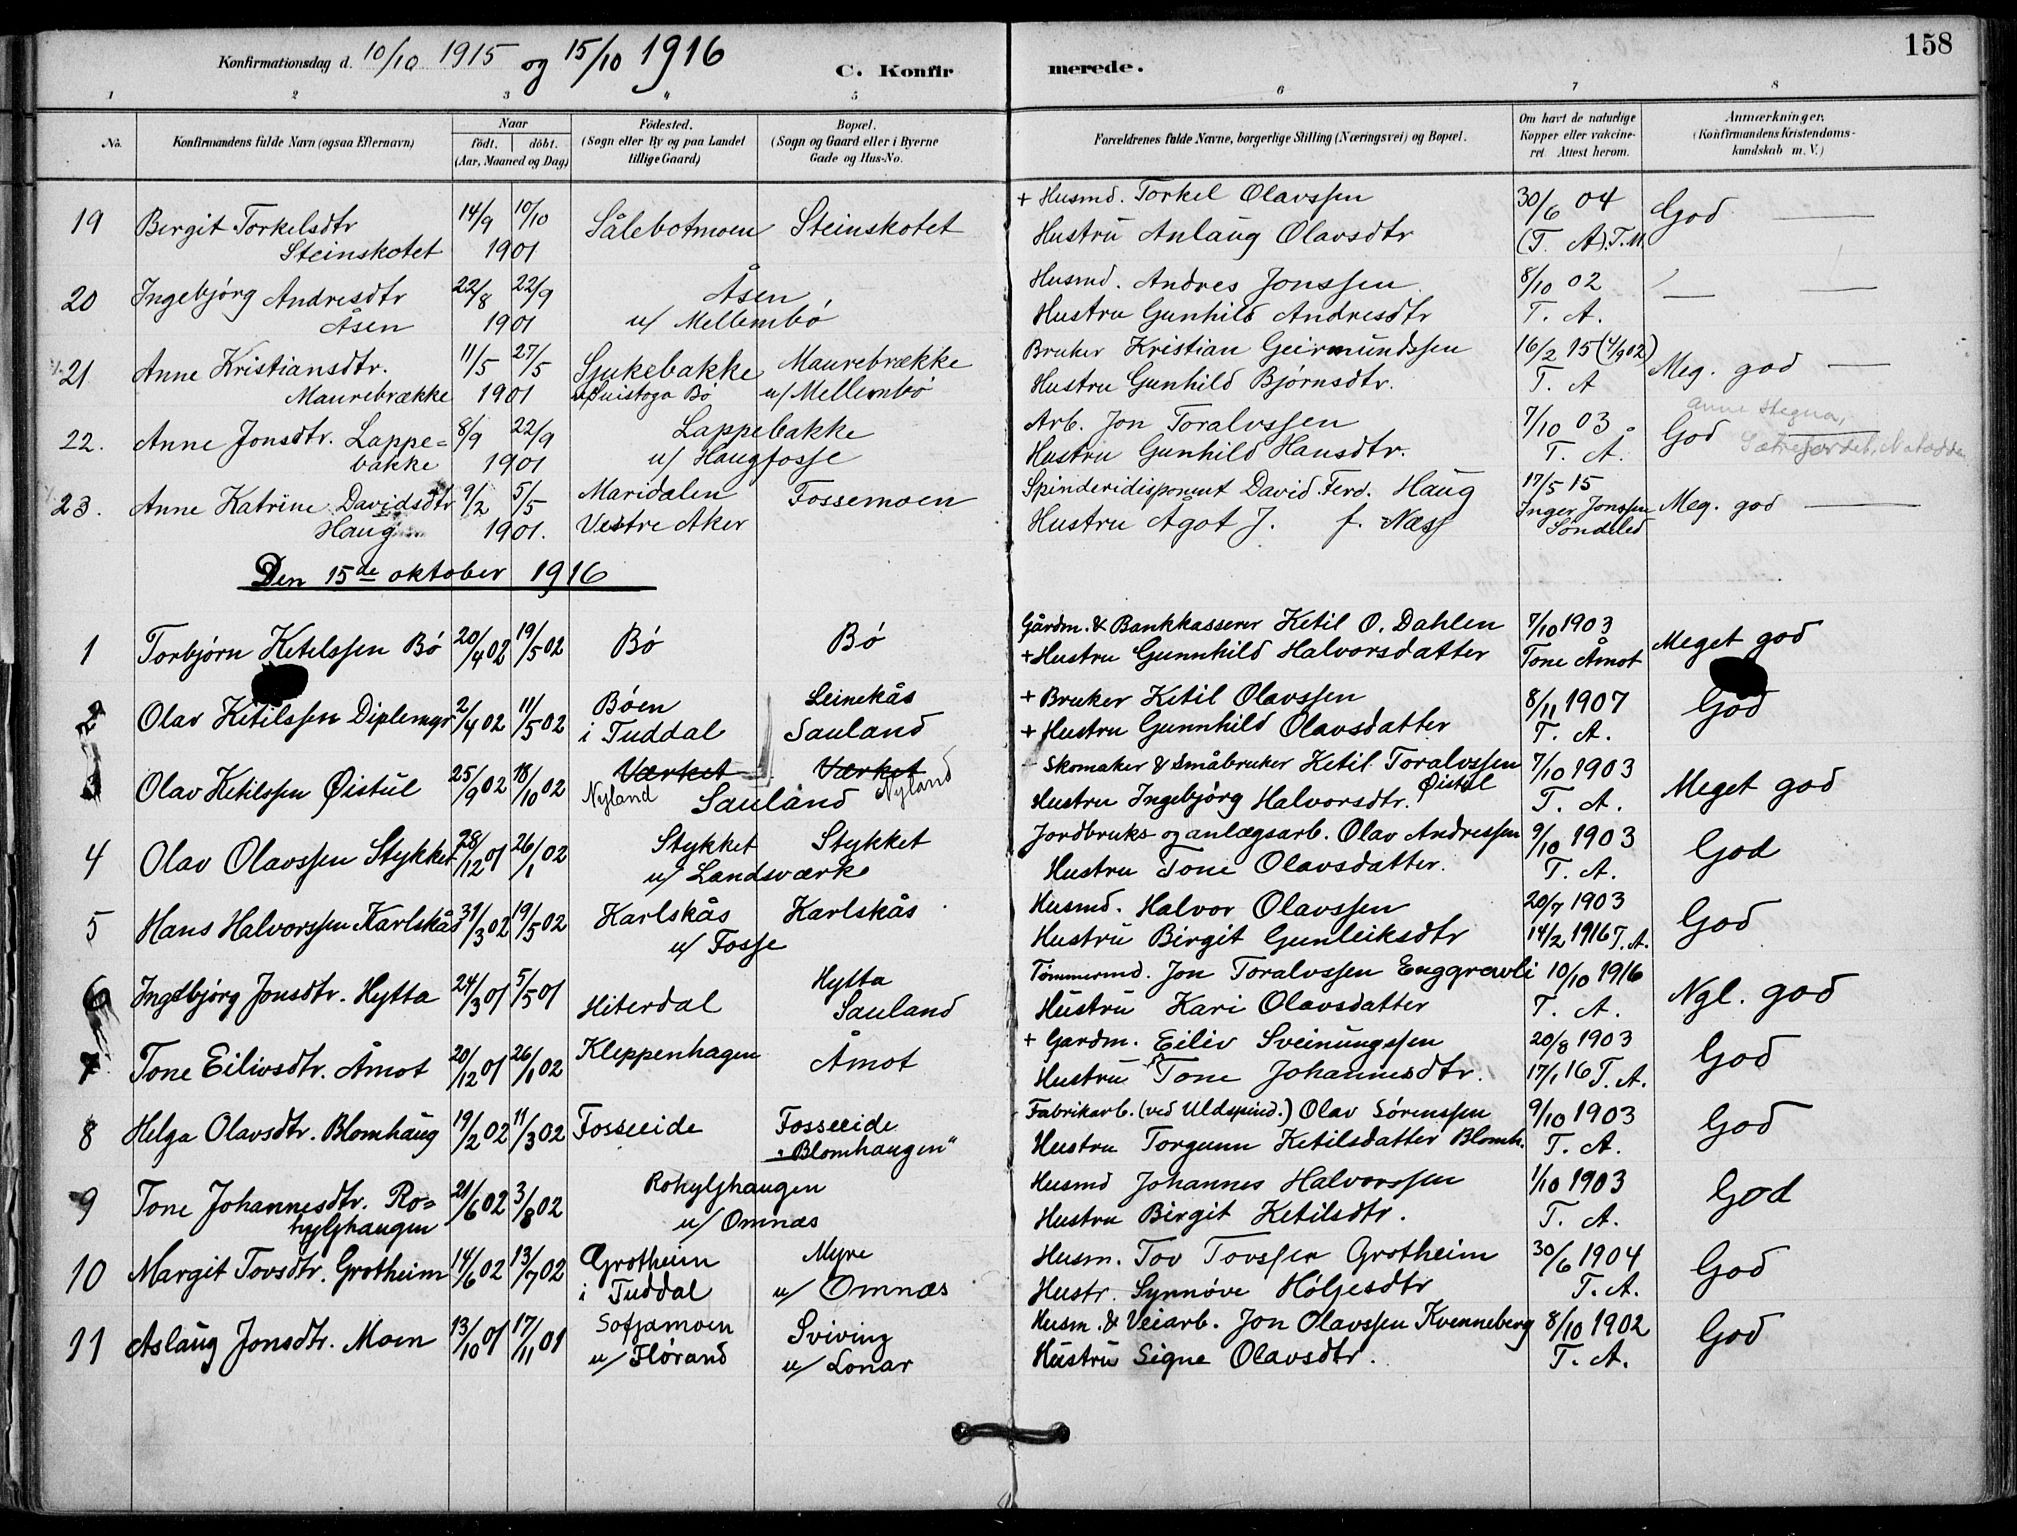 158
Konfirmationsdag d. 10/10 1915 og 15/10 1916 C. Konfirmerede.
1 2 3 4 5 6 7 8
No. Konfirmandens fulde Navn (ogsaa Efternavn) Naar født. døbt. (Aar, Maaned og Dag) Fødested. (Sogn eller By og paa Landet tillige Gaard) Bopæl. (Sogn og Gaard eller i Byerne Gade og Hus-No. Forældrenes fulde Navne, borgerlige Stilling (Næringsvei) og Bopæl. Om havt de naturlige Kopper eller vakcineret. Attest herom. Anmærkninger. (Konfirmandens Kristendomskundskab m. V.)
19 Bergit Torkelsdtr 14/9 10/10 Sålebotmoen Steinskotet + Husmd. Torkel Olavssen 30/6 04 God —
Steinskotet 1901 Hustru Anlaug Olavsdtr (T. A). T.M.
20 Ingebjørg Andresdtr 22/8 22/9 Åsen Husmd. Andres Jonssen 8/10 02 — —
Åsen 1901 u/ Mellembø Hustru Gunhild Andresdtr T. A.
21 Anne Kristiansdtr. 11/5 27/5 Sjukebakke Maurebrække Bruker Kristian Geirmundssen 16/2 15 (4/9 02) Meg. god —
Maurebrække 1901 Bø u/ Mellembø Hustru Gunhild Bjørnsdtr. T. A
22. Anne Jonsdtr. Lappe= 8/9 22/9 Lappebakke Arb. Jon Toralvssen 7/10 03. God Anne Stegna,
bakke 1901 u/ Haugfosse Hustru Gunhild Hansdtr. T. A.
23. Anne Katrine Davidsdtr 9/2 5/5 Maridalen Fossemoen Spinderidisponent David Ferd. Haug 17/5 15 Meg. god —
Haug 1901. Vestre Aker Hustru Ågot J. f. Næss Inger Jonssen Søndeled
Den 15de oktober 1916
1 Torbjørn Ketilssen Bø 20/4 02 19/5 02 Bø Bø Gårdm. & Bankkasserer Ketil O. Dahlen 7/10 1903 Meget god
+ Hustru Gunnhild Halvorsdatter Tone Åmot
2 Olav Ketilssen Diplemyr 2/4 02 11/5 02 Bøen Leinekås + Bruker Ketil Olavssen 8/11 1907 God
i Tuddal Sauland + Hustru Gunnhild Olavsdatter T. A.
3 Olav Ketilssen Øistul 25/9 02 18/10 02 Værket Værket Skomaker & Småbruker Ketil Toralvssen Øistul 7/10 1903 Meget god
Nyland Sauland Nyland Hustru Ingebjørg Halvorsdtr. T. A.
4 Olav Olavssen Stykket 28/12 01 26/1 02 Stykket Stykket Jordbruks og anlægsarb. Olav Andressen 9/10 1903 God
u/ Landsværke Hustru Tone Olavsdatter. T. A.
5 Hans Halvorssen Karlskås 31/3 02 19/5 02 Karlskås Karlskås Husmd. Halvor Olavssen 20/7 1903 God
u/ Fosse Hustru Birgit Gunleiksdtr 14/2 1916 T. A.
6 Ingebjørg Jonsdtr. Hytta 24/3 01 5/5 01 Hiterdal Hytta Tømmermd. Jon Toralvssen Enggravli 10/10 1916 Ngl. god
Sauland Hustru Kari Olavsdatter T. A.
7 Tone Eilivsdtr. Åmot 20/12 01 26/1 02 Kleppenhagen Åmot + Gardm. Eiliv Sveinungssen 20/8 1903 God
Hustru Tone Johannesdtr. 17/1 16 T. A.
8 Helga Olavsdtr. Blomhaug 19/2 02 11/3 02 Fosseeide Fosseeide Fabrikarb. (ved Uldspind.) Olav Sørenssen 9/10 1903 God
"Blomhaugen" Hustru Torgunn Ketilsdatter Blomh. T. A.
9 Tone Johannesdtr. Ro= 21/6 02 3/8 02 Rohyljhaugen Husmd Johannes Halvorssen 1/10 1903 God
hyljhaugen u/ Omnæs Hustru Birgit Ketilsdtr. T. A.
10 Margit Tovsdtr. Grotheim 14/6 02 13/7 02 Grotheim Myre Husm. Tov Tovssen Grotheim 30/6 1904 God
i Tuddal u/ Omnæs Hustr. Synnøve Høljesdtr T. A.
11 Aslaug Jonsdtr. Moen 13/10 01 17/11 01 Sofjamoen Sviving Husm. & Veiarb. Jon Olavssen Kvenneberg 8/10 1902 God
u/ Flørand u/ Lonar Hustru Signe Olavsdtr. T. A.